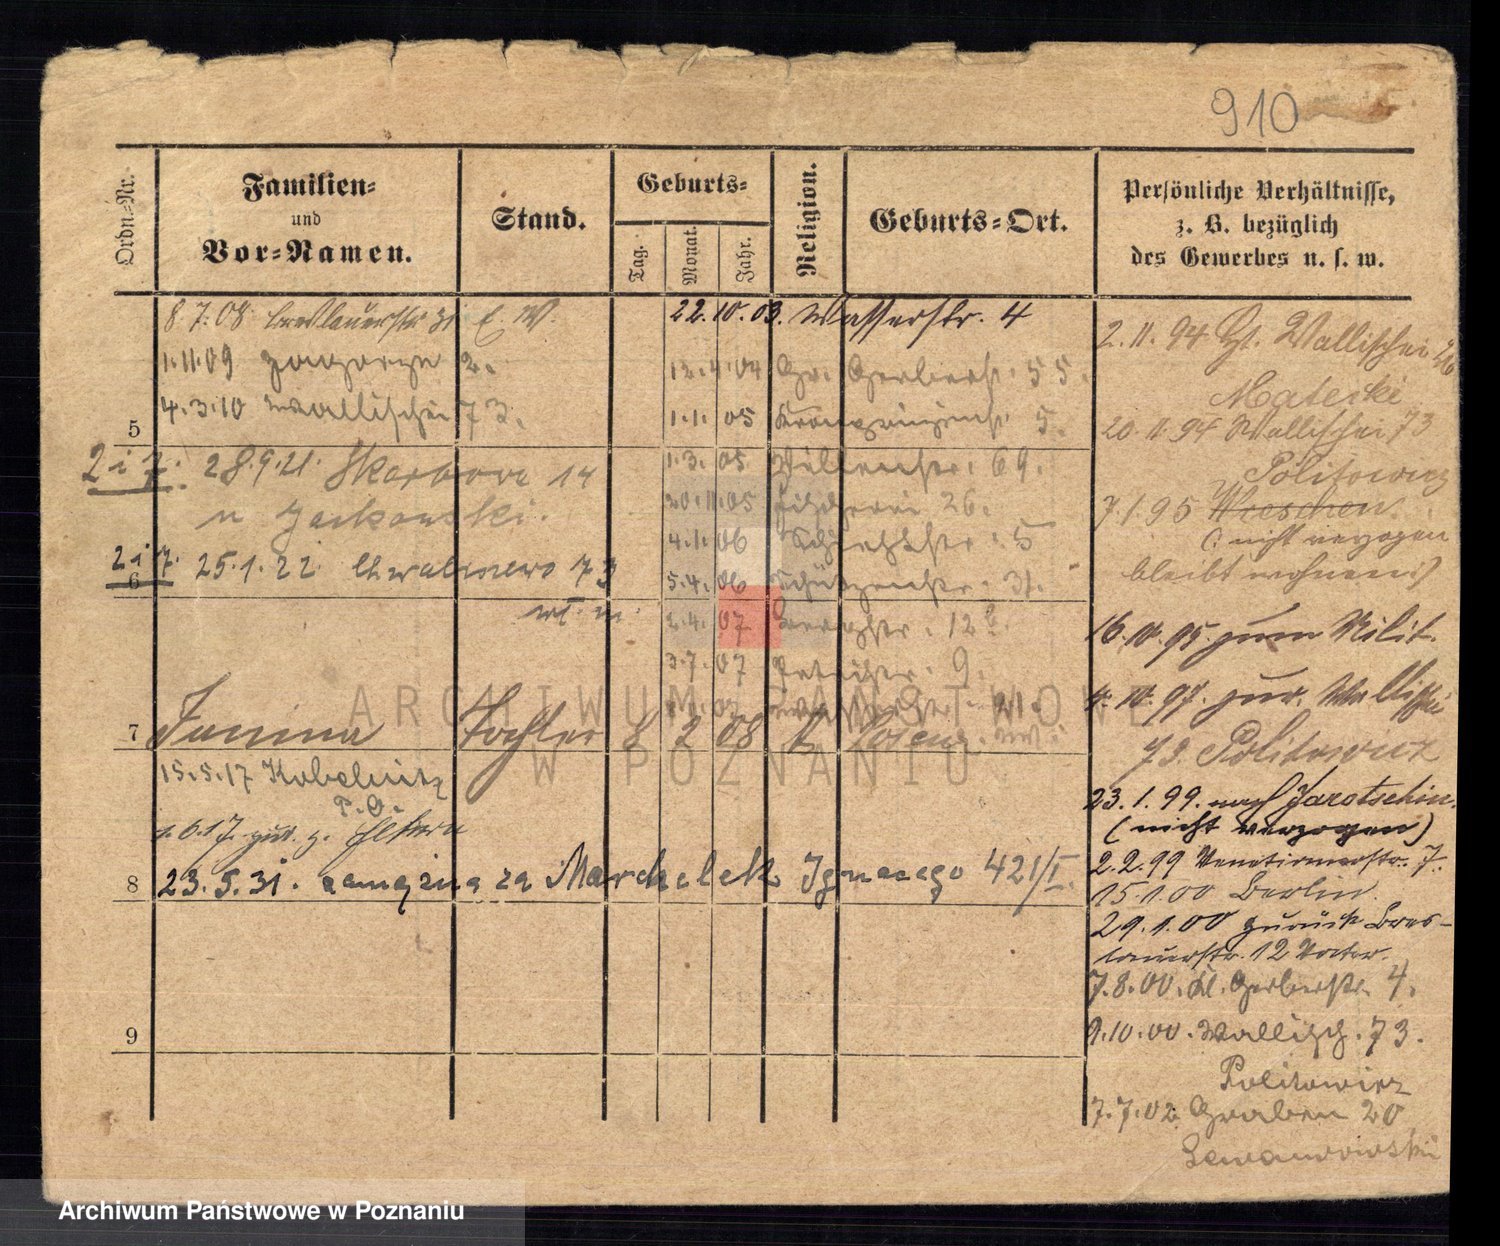 910
Ordn.-Nr.
Familien-
und
Vor-Namen.
Stand.
Geburts-
Tag.
Monat.
Jahr.
Religion.
Geburts-Ort.
Persönliche Verhältnisse,
z. B. bezüglich
des Gewerbes u. s. w.
8.7.08 Breslauerstr 31 E. W.
1.11.09 Zagorze 2.
4.3.10 Wallischei 73.
5
2 i 7. 28.9.21. Skarbowa 14
u Jackowski.
2 i 7. 25.1.22 Chwaliszewo 73
6
22.10.03. Wasserstr. 4
12.4.04 Gr. Gerberstr. 55.
1.1.05 Kronprinzenstr. 5.
1.3.05 69.
20.11.05 Fischerei 26.
4.1.06 5
5.4.06 Schützenstr. 31.
2.4.07 12
3.7.07 9.
21.
7
Janina Tochter 8 2 08 k Posen.
15.5.17 Kobelnitz
P.O.
1.6.17 zur. z. Eltern
8
23.5.31. zamężna za Marchelek Ignacego 421/I.
9
2.11.94 Wallischei
Matecki
20.11.94 Wallischei 73
Politowicz
7.1.95 Wreschen
(: nicht verzogen
bleibt wohnen :)
16.10.95 zum Milit.
4.10.97. zur. Wallischei
73. Politowicz
23.1.99. nach Jarotschin.
(nicht verzogen)
2.2.99 Venetianerstr. 7.
15.1.00 Berlin.
29.1.00 zurück Bres-
lauerstr. 12 Vater.
7.8.00. Kl. Gerberstr. 4.
9.10.00. Wallisch. 73.
Politowicz
7.7.02 Graben 20
ARCHIWUM PAŃSTWOWE
W POZNANIU
Archiwum Państwowe w Poznaniu